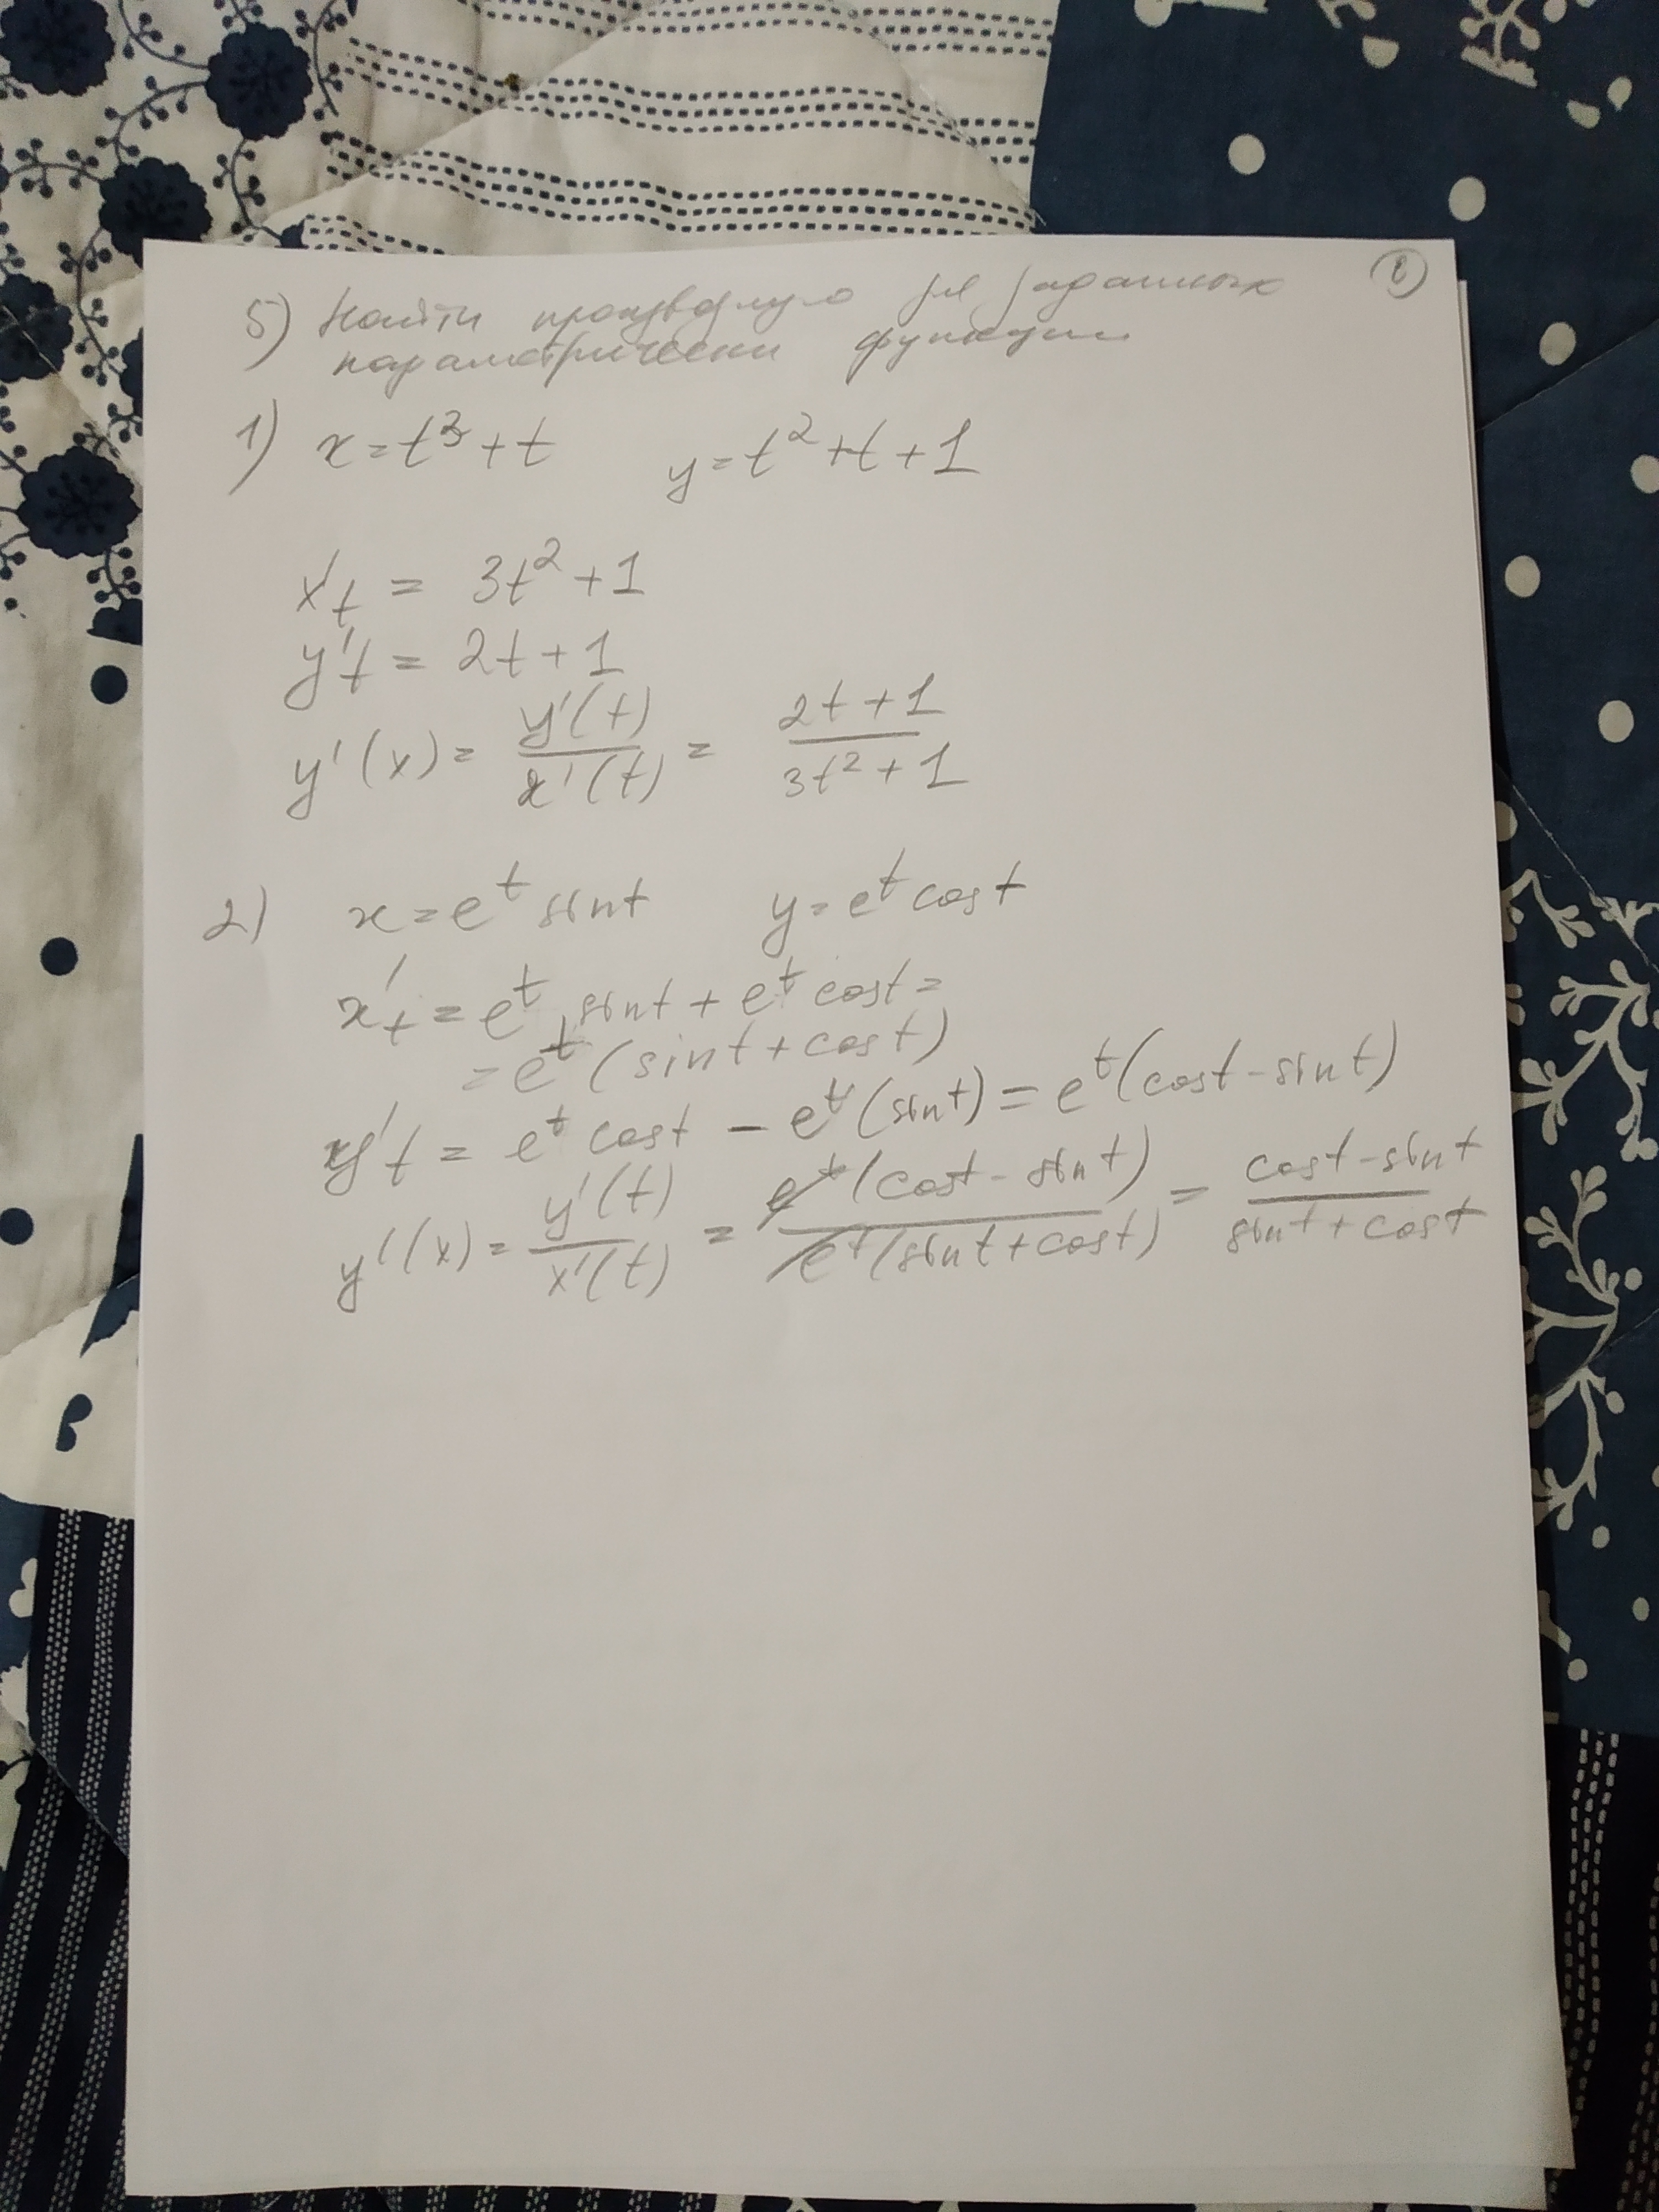 6
5) Найти производную для заданных
параметрически функции
1) x = t³ + t y = t² + t + 1
x't = 3t² + 1
y't = 2t + 1
y'(x) = y'(t) / x'(t) = 2t + 1 / 3t² + 1
2) x = e^t sin t y = e^t cos t
x't = e^t sin t + e^t cos t =
= e^t (sin t + cos t)
y't = e^t cos t - e^t (sin t) = e^t (cos t - sin t)
y'(x) = y'(t) / x'(t) = e^t (cos t - sin t) / e^t (sin t + cos t) = cos t - sin t / sin t + cos t